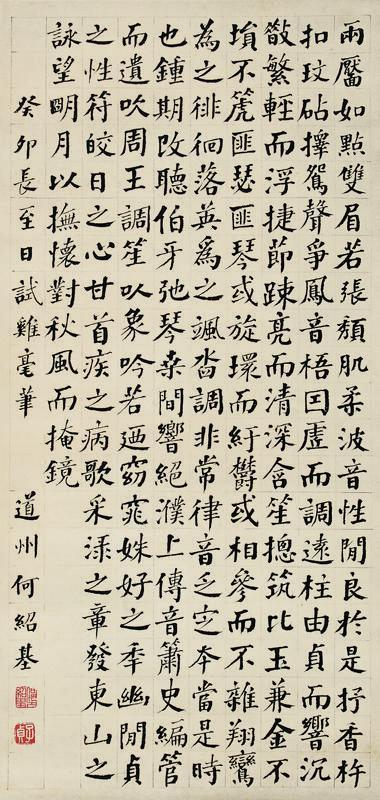 兩靨如點雙眉若張頹肌柔波音性閒良於是抒香杵
扣玟砧擇鴛聲爭鳳音梧因虛而調遠柱由貞而響沉
散繁輕而浮捷節踈亮而清深含笙揔筑比玉兼金不
塤不箎匪瑟匪琴或旋環而紆欝或相參而不雜翔鸞
為之徘徊落英爲之颯沓調非常律音乏定本當是時
也鍾期改聽伯牙弛琴桑間響絕濮上傳音簫史編管
而遺吹周王調笙以象吟若迺窈窕姝好之年幽閒貞
之性符皎日之心甘首疾之病歌采淥之章發東山之
詠望朙月以撫懷對秋風而掩鏡
癸卯長至日試雞毫筆 道州何紹基
子貞